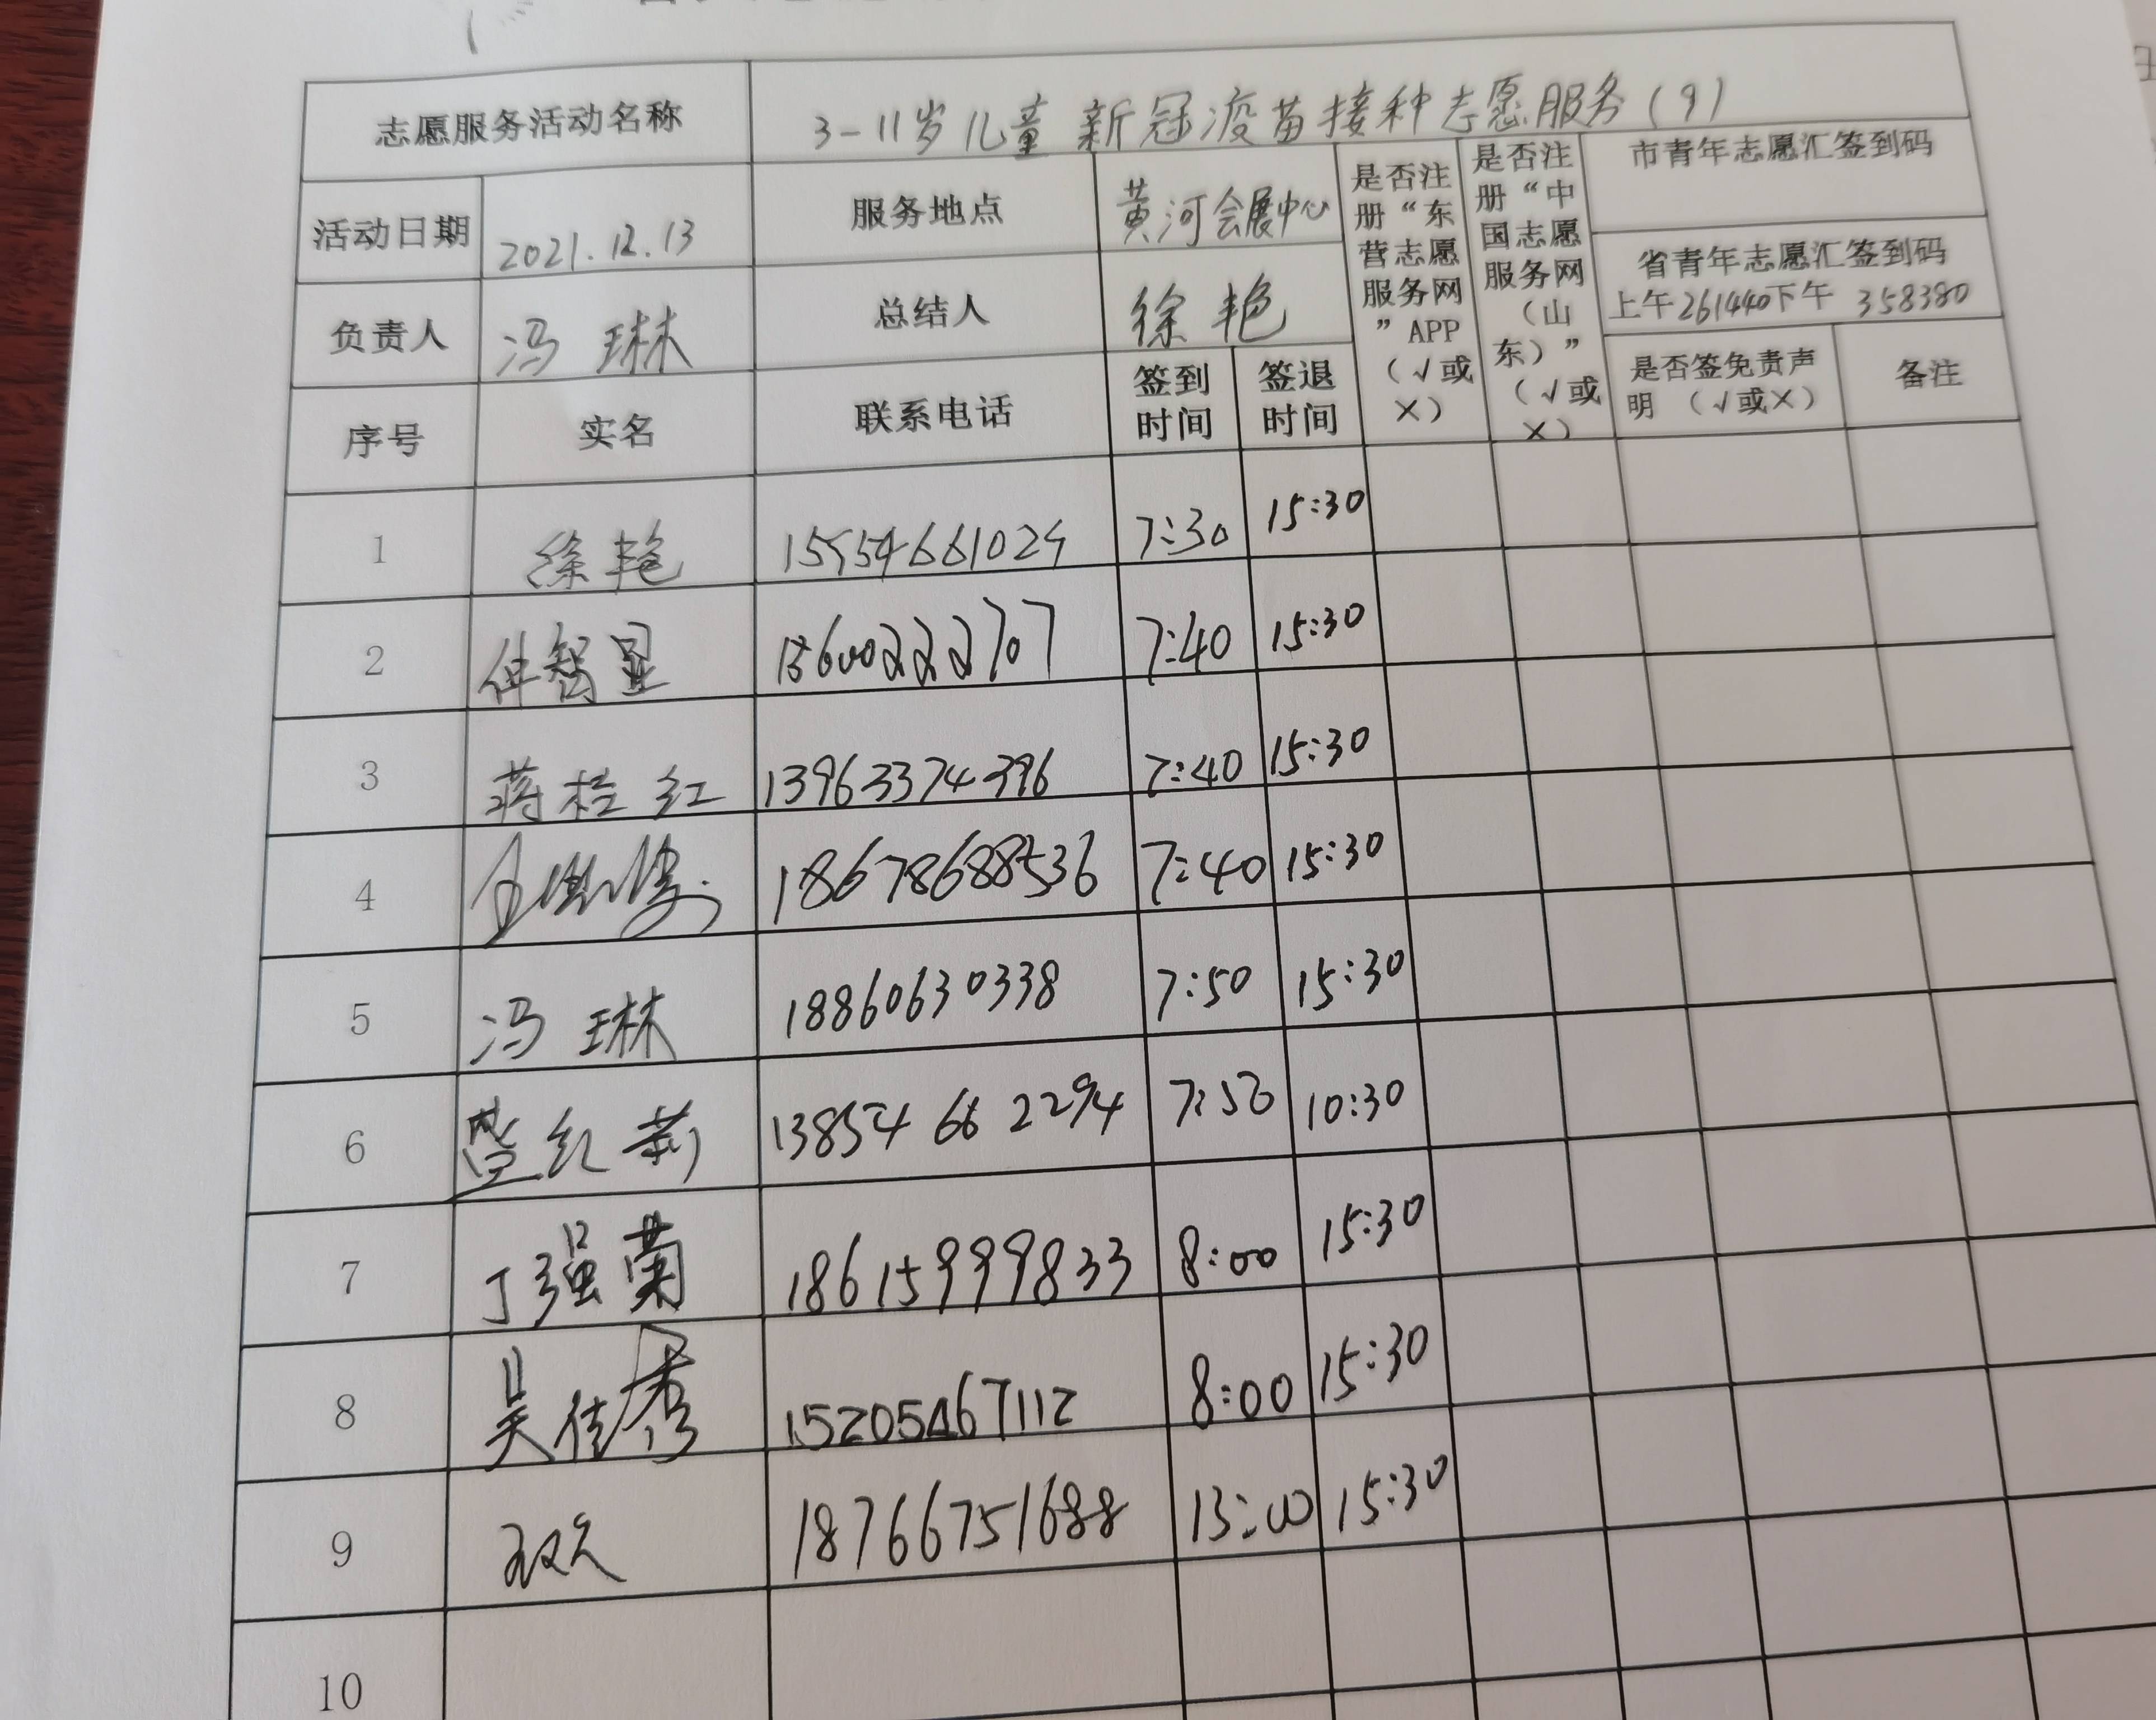 志愿服务活动名称 3-11岁儿童新冠疫苗接种志愿服务(9)
活动日期 2021.12.13 服务地点 黄河会展中心 是否注册“东营志愿服务网”APP（√或×） 是否注册“中国志愿服务网（山东）”（√或×） 市青年志愿汇签到码
省青年志愿汇签到码
上午261440下午 358380
负责人 冯琳 总结人 徐艳
序号 实名 联系电话 签到时间 签退时间 是否签免责声明（√或×） 备注
1 徐艳 15954661029 7:30 15:30
2 仲智显 7:40 15:30
3 蒋桂红 13963374396 7:40 15:30
4 18678688536 7:40 15:30
5 冯琳 18860630338 7:50 15:30
6 红莉 13854662294 7:50 10:30
7 丁强菊 18615999833 8:00 15:30
8 吴佳秀 15205467112 8:00 15:30
9 18766751688 13:00 15:30
10